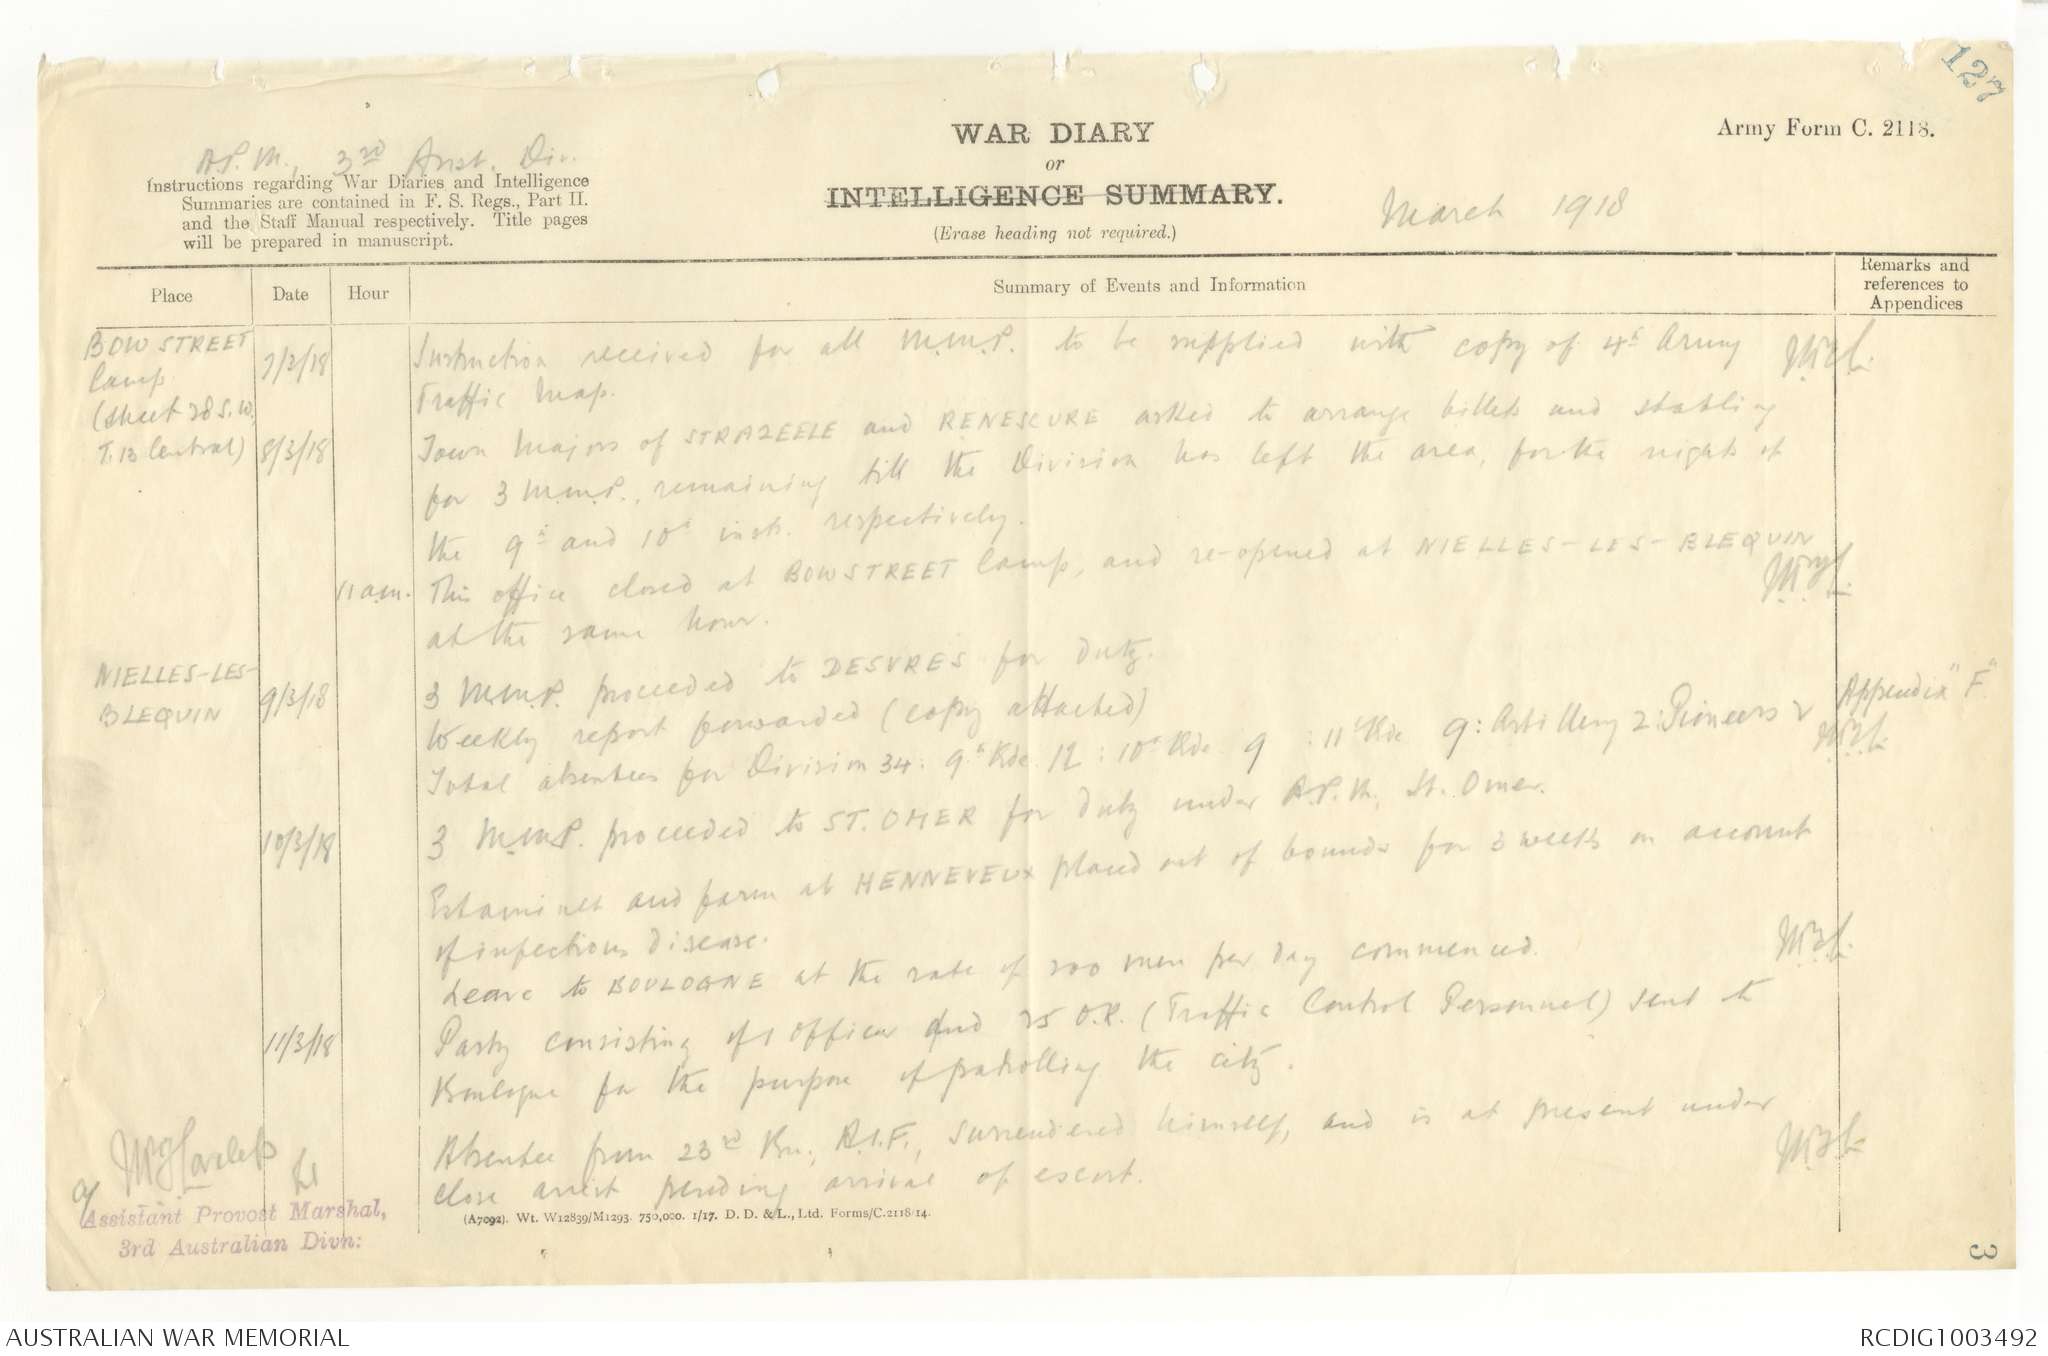 127
A.P.M., 3rd Aust. Div.
Instructions regarding War Diaries and Intelligence
Summaries are contained in F. S. Regs., Part II.
and the Staff Manual respectively. Title pages
will be prepared in manuscript.
WAR DIARY
or
INTELLIGENCE SUMMARY.
(Erase heading not required.)
March 1918
Army Form C. 2118.
Place Date Hour Summary of Events and Information Remarks and references to Appendices
BOW STREET
Camp
(Sheet 28 S.W.
T.13 Central)
7/3/18 Instruction received for all M.M.P. to be supplied with copy of 4th Army
Traffic Map.
8/3/18 Town Majors of STRAZEELE and RENESCURE asked to arrange billets and stabling
for 3 M.M.P., remaining till the Division has left the area, for the nights of
the 9th and 10th inst. respectively.
11 a.m. This office closed at BOWSTREET Camp, and re-opened at NIELLES-LES-BLEQUIN
at the same hour.
NIELLES-LES-
BLEQUIN
9/3/18 3 M.M.P. proceeded to DESVRES for duty.
Weekly report forwarded (copy attached) Appendix "F"
Total absentees for Division 34: 9th Bde. 12 : 10th Bde. 9 : 11th Bde. 9: Artillery 2: Pioneers 2
10/3/18 3 M.M.P. proceeded to ST. OMER for duty under A.P.M., St. Omer.
Estaminet and farm at HENNEVEUX placed out of bounds for 3 weeks on account
of infectious disease.
Leave to BOULOGNE at the rate of 200 men per day commenced.
11/3/18 Party consisting of 1 Officer and 25 O.R. (Traffic Control Personnel) sent to
Boulogne for the purpose of patrolling the city.
Absentee from 23rd Bn., A.I.F., surrendered himself, and is at present under
close arrest pending arrival of escort.
Lt
a/ Assistant Provost Marshal,
3rd Australian Divn:
(A7092). Wt. W12839/M1293. 750,000. 1/17. D. D. & L., Ltd. Forms/C.2118/14.
3
AUSTRALIAN WAR MEMORIAL
RCDIG1003492